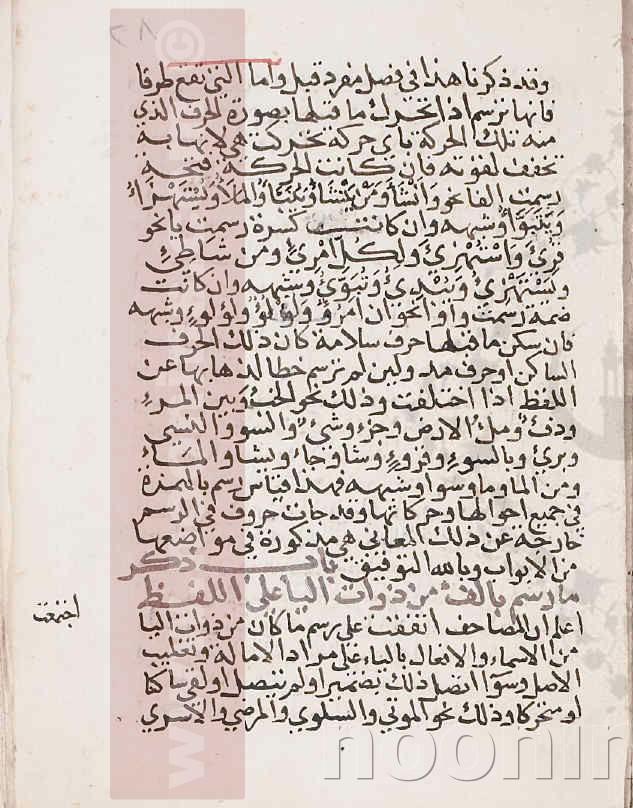 ٢٨
وقد ذكرنا هذا في فصل مفرد قبل واما التي تقع طرفا
فانها ترسم اذا تحرك ما قبلها بصورة الحرف الذي
منه تلك الحركة باي حركة تحركت هي لانها به
تخفف لقوته فان كانت الحركة فتحة
رسمت الفا نحو وَانْشَأَ وَمَنْ يَشَأ وَنَبَأ وَالمَلَأُ وَيُسْتَهْزَأُ
وَيَتَبَوَّأُ وشبهه وان كانت كسرة رسمت يا نحو
قُرِئَ وَاسْتُهْزِئَ وَلِكُلِّ امْرِئٍ وَمِنْ شَاطِئِ
وَيَسْتَهْزِئُ وَيُبْدِئُ وَتُبَوِّئُ وشبهه وان كانت
ضمة رسمت واوا نحو ان امرُؤٌ وَلُؤْلُؤٌ ولؤلؤٍ وشبهه
فان سكن ما قبلها حرف سلامة كان ذلك الحرف
الساكن او حرف مد ولين لم ترسم خطا لذهابها من
اللفظ اذا خففت وذلك نحو الخبْءَ وبين المرءِ
ودفءٌ وملءُ الارض وجزءٌ وشيءٌ والسوء والنسي
وبريءٌ وبالسوءِ وقروءٍ وشاء وجاء ويشاء والماء
ومن الماء وما وسواء وشبهه فهذا قياس رسم الهمزة
في جميع احوالها وحركاتها وقد جات حروف في الرسم
خارجة عن ذلك لمعاني هي مذكورة في مواضعها
من الابواب وبالله التوفيق باب ذكر
ما رسم بالف من ذوات اليا على اللفظ
اعلم ان المصاحف اتفقت على رسم ما كان من ذوات اليا
اجتمعت
من الاسماء والافعال بالياء على مراد الامالة وتغليب
الاصل وسوآ اتصل ذلك بضمير او لم يتصل او لقي ساكنا
او متحركا وذلك نحو الموتي والسلوي والمرضي والاسري
noonin